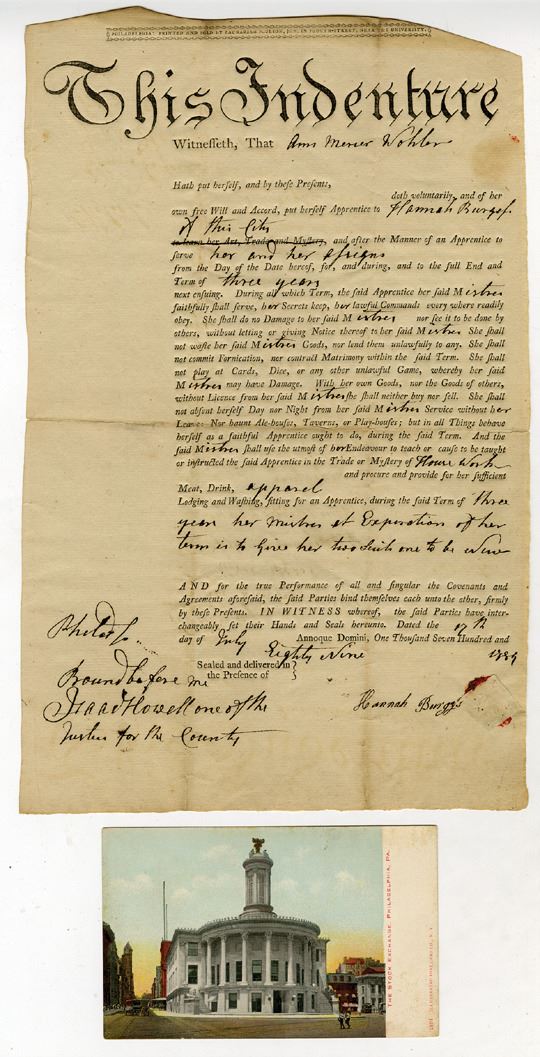 PHILADELPHIA: PRINTED AND SOLD BY ZACHARIAH POULSON, JUN. IN FOURTH-STREET, NEAR THE UNIVERSITY.
This Indenture
Witnesseth, That Ann Mercer Wohler
Hath put herself, and by these Presents,
doth voluntarily, and of her
own free Will and Accord, put herself Apprentice to Hannah Burges
of this City
to learn her Art, Trade and Mystery, and after the Manner of an Apprentice to
serve her and her assigns
from the Day of the Date hereof, for, and during, and to the full End and
Term of three years
next ensuing. During all which Term, the said Apprentice her said Mistres
faithfully shall serve, her Secrets keep, her lawful Commands every where readily
obey. She shall do no Damage to her said Mistres nor see it to be done by
others, without letting or giving Notice thereof to her said Mistres She shall
not waste her said Mistres Goods, nor lend them unlawfully to any. She shall
not commit Fornication, nor contract Matrimony within the said Term. She shall
not play at Cards, Dice, or any other unlawful Game, whereby her said
Mistres may have Damage. With her own Goods, nor the Goods of others,
without Licence from her said Mistres she shall neither buy nor sell. She shall
not absent herself Day nor Night from her said Mistres Service without her
Leave: Nor haunt Ale-houses, Taverns, or Play-houses; but in all Things behave
herself as a faithful Apprentice ought to do, during the said Term. And the
said Mistres shall use the utmost of her Endeavour to teach or cause to be taught
or instructed the said Apprentice in the Trade or Mystery of House Work
and procure and provide for her sufficient
Meat, Drink, apparel
Lodging and Washing, fitting for an Apprentice, during the said Term of three
years her mistres at Experation of her
term is to Give her two suits one to be New
AND for the true Performance of all and singular the Covenants and
Agreements aforesaid, the said Parties bind themselves each unto the other, firmly
by these Presents. IN WITNESS whereof, the said Parties have inter-
changeably set their Hands and Seals hereunto. Dated the 17th
day of July Annoque Domini, One Thousand Seven Hundred and
Eighty Nine 1789
Sealed and delivered in
the Presence of
Bound before me
Isaac Howell one of the
Justice for the County
Hannah Burges
THE STOCK EXCHANGE, PHILADELPHIA, PA.